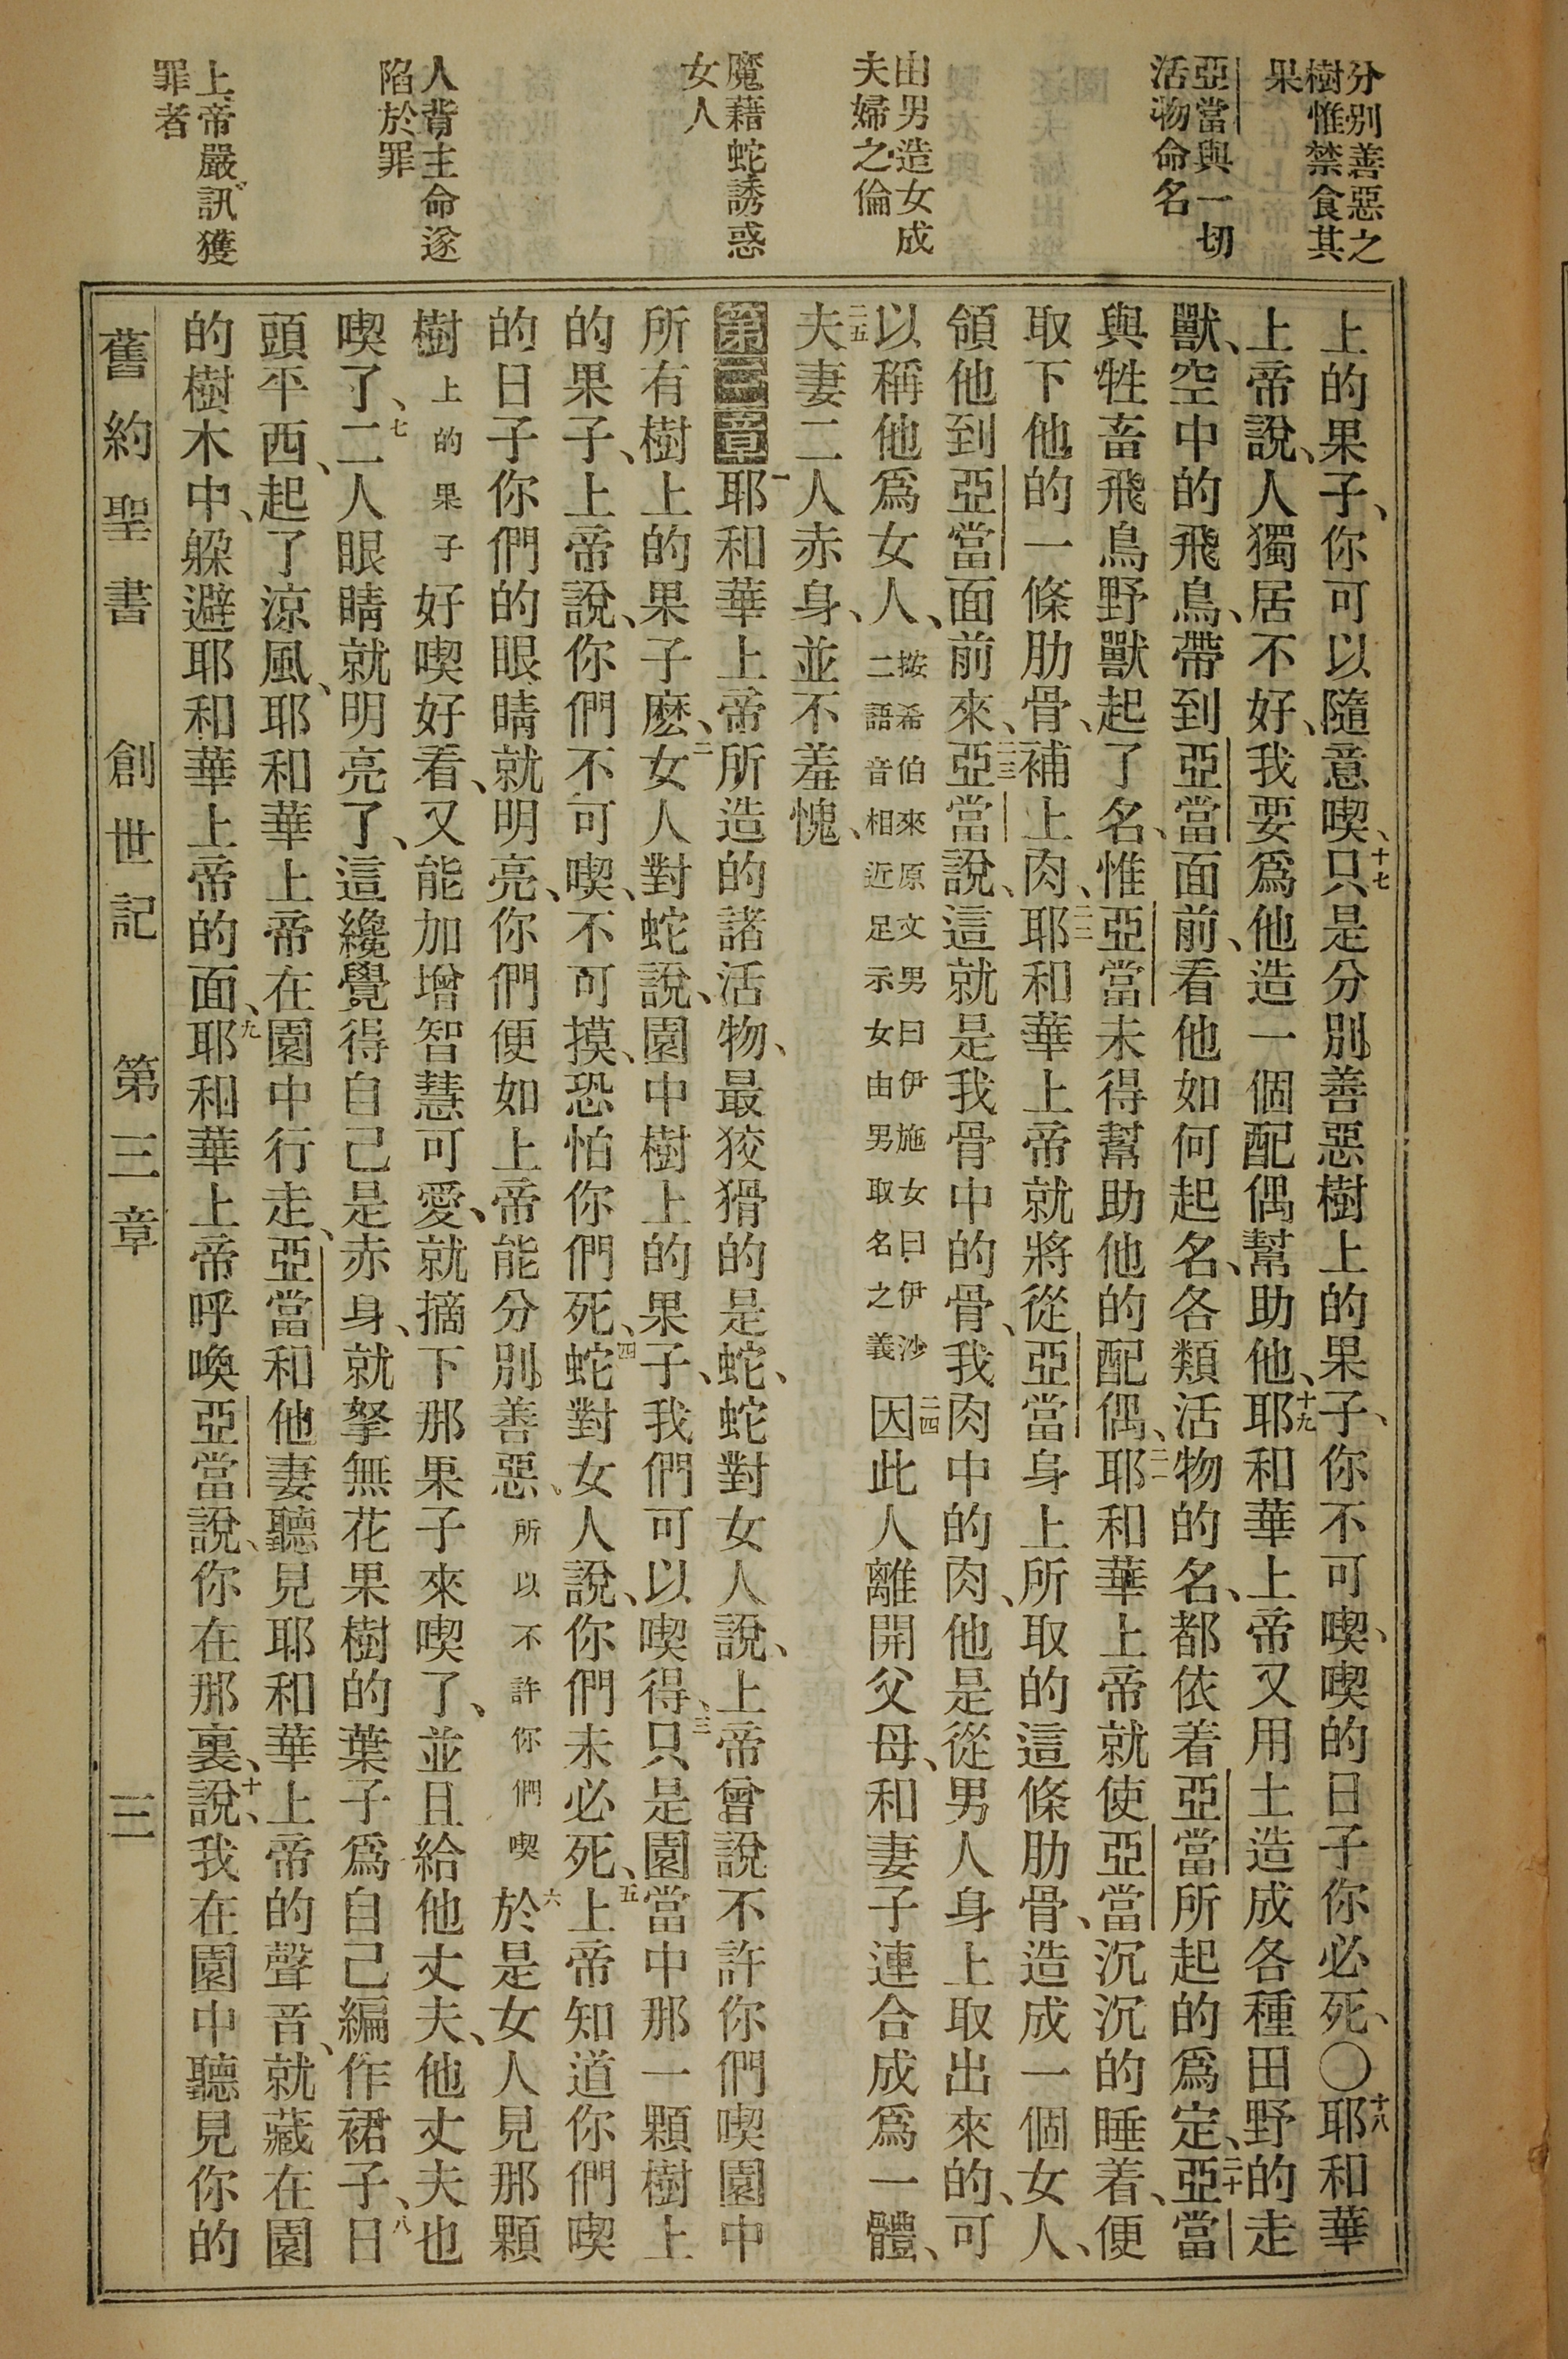 分別善惡之
樹惟禁食其
果
亞當與一切
活物命名
由男造女成
夫婦之倫
魔藉蛇誘惑
女人
人背主命遂
陷於罪
上帝嚴訊獲
罪者
上的果子、你可以隨意喫、十七只是分別善惡樹上的果子、你不可喫、喫的日子你必死、〇十八耶和華
上帝說、人獨居不好、我要爲他造一個配偶幫助他、十九耶和華上帝又用土造成各種田野的走
獸、空中的飛鳥、帶到亞當面前、看他如何起名、各類活物的名、都依着亞當所起的爲定、二十亞當
與牲畜飛鳥野獸起了名、惟亞當未得幫助他的配偶、二一耶和華上帝就使亞當沉沉的睡着、便
取下他的一條肋骨、補上肉、二二耶和華上帝就將從亞當身上所取的這條肋骨、造成一個女人、
領他到亞當面前來、二三亞當說、這就是我骨中的骨、我肉中的肉、他是從男人身上取出來的、可
以稱他爲女人、按希伯來原文男曰伊施女曰伊沙二語音相近足示女由男取名之義二四因此人離開父母、和妻子連合成爲一體、
二五夫妻二人赤身、並不羞愧、
第三章一耶和華上帝所造的諸活物、最狡猾的是蛇、蛇對女人說、上帝曾說不許你們喫園中
所有樹上的果子麽、二女人對蛇說、園中樹上的果子、我們可以喫得、三只是園當中那一顆樹上
的果子、上帝說、你們不可喫、不可摸、恐怕你們死、四蛇對女人說、你們未必死、五上帝知道你們喫
的日子你們的眼睛就明亮、你們便如上帝能分別善惡、所以不許你們喫六於是女人見那顆
樹上的果子好喫好看、又能加增智慧可愛、就摘下那果子來喫了、並且給他丈夫、他丈夫也
喫了、七二人眼睛就明亮了、這纔覺得自己是赤身、就拏無花果樹的葉子爲自己編作裙子、八日
頭平西、起了涼風、耶和華上帝在園中行走、亞當和他妻聽見耶和華上帝的聲音、就藏在園
的樹木中、躲避耶和華上帝的面、九耶和華上帝呼喚亞當說、你在那裏、十說、我在園中聽見你的
舊約聖書 創世記 第三章 三